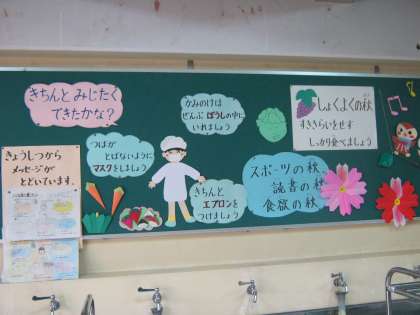 きちんとみじたく
できたかな?
かみのけは
ぜんぶ ぼうしの中に
いれましょう
しょくよくの秋
すききらいをせず
しっかり食べましょう
つばが
とばないように
マスクをしましょう
きょうしつから
メッセージが
とどいています。
きちんと
エプロンを
つけましょう
スポーツの秋、
読書の秋
食欲の秋